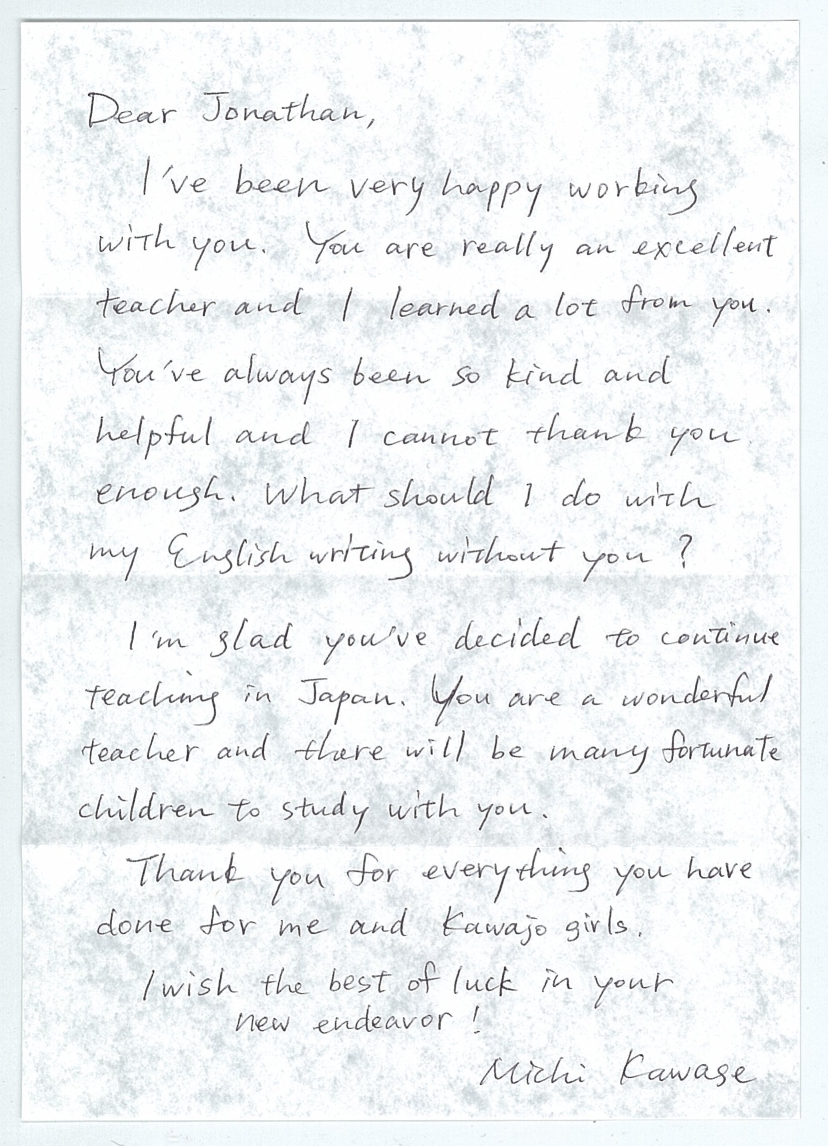 Dear Jonathan,
I've been very happy working
with you. You are really an excellent
teacher and I learned a lot from you.
You've always been so kind and
helpful and I cannot thank you
enough. What should I do with
my English writing without you?
I'm glad you've decided to continue
teaching in Japan. You are a wonderful
teacher and there will be many fortunate
children to study with you.
Thank you for everything you have
done for me and Kawajo girls.
I wish the best of luck in your
new endeavor!
Michi Kawase